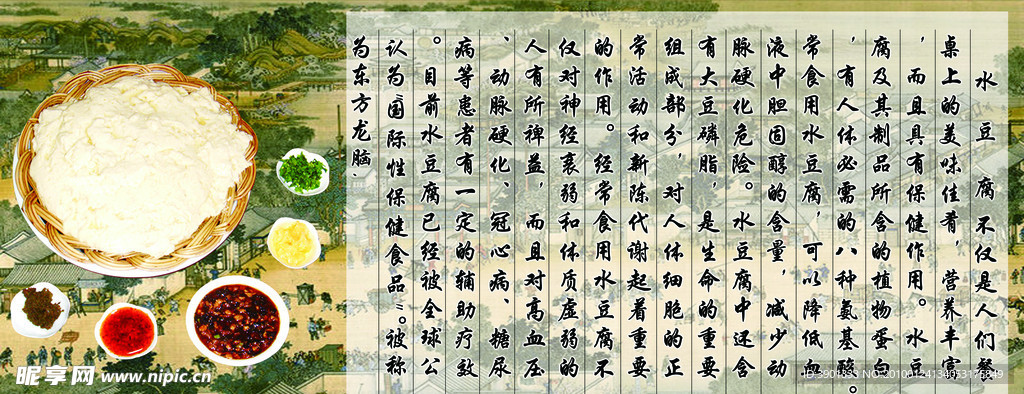 水豆腐不仅是人们餐
桌上的美味佳肴，营养丰富
，而且具有保健作用。水豆
腐及其制品所含的植物蛋白
，有人体必需的八种氨基酸。
常食用水豆腐，可以降低血
液中胆固醇的含量，减少动
脉硬化危险。水豆腐中还含
有大豆磷脂，是生命的重要
组成部分，对人体细胞的正
常活动和新陈代谢起着重要
的作用。经常食用水豆腐不
仅对神经衰弱和体质虚弱的
人有所裨益，而且对高血压
、动脉硬化、冠心病、糖尿
病等患者有一定的辅助疗效
。目前水豆腐已经被全球公
认为“国际性保健食品”。被称
为东方龙脑.
昵享网 www.nipic.cn
ID:3901833 NO:20100124134053176849